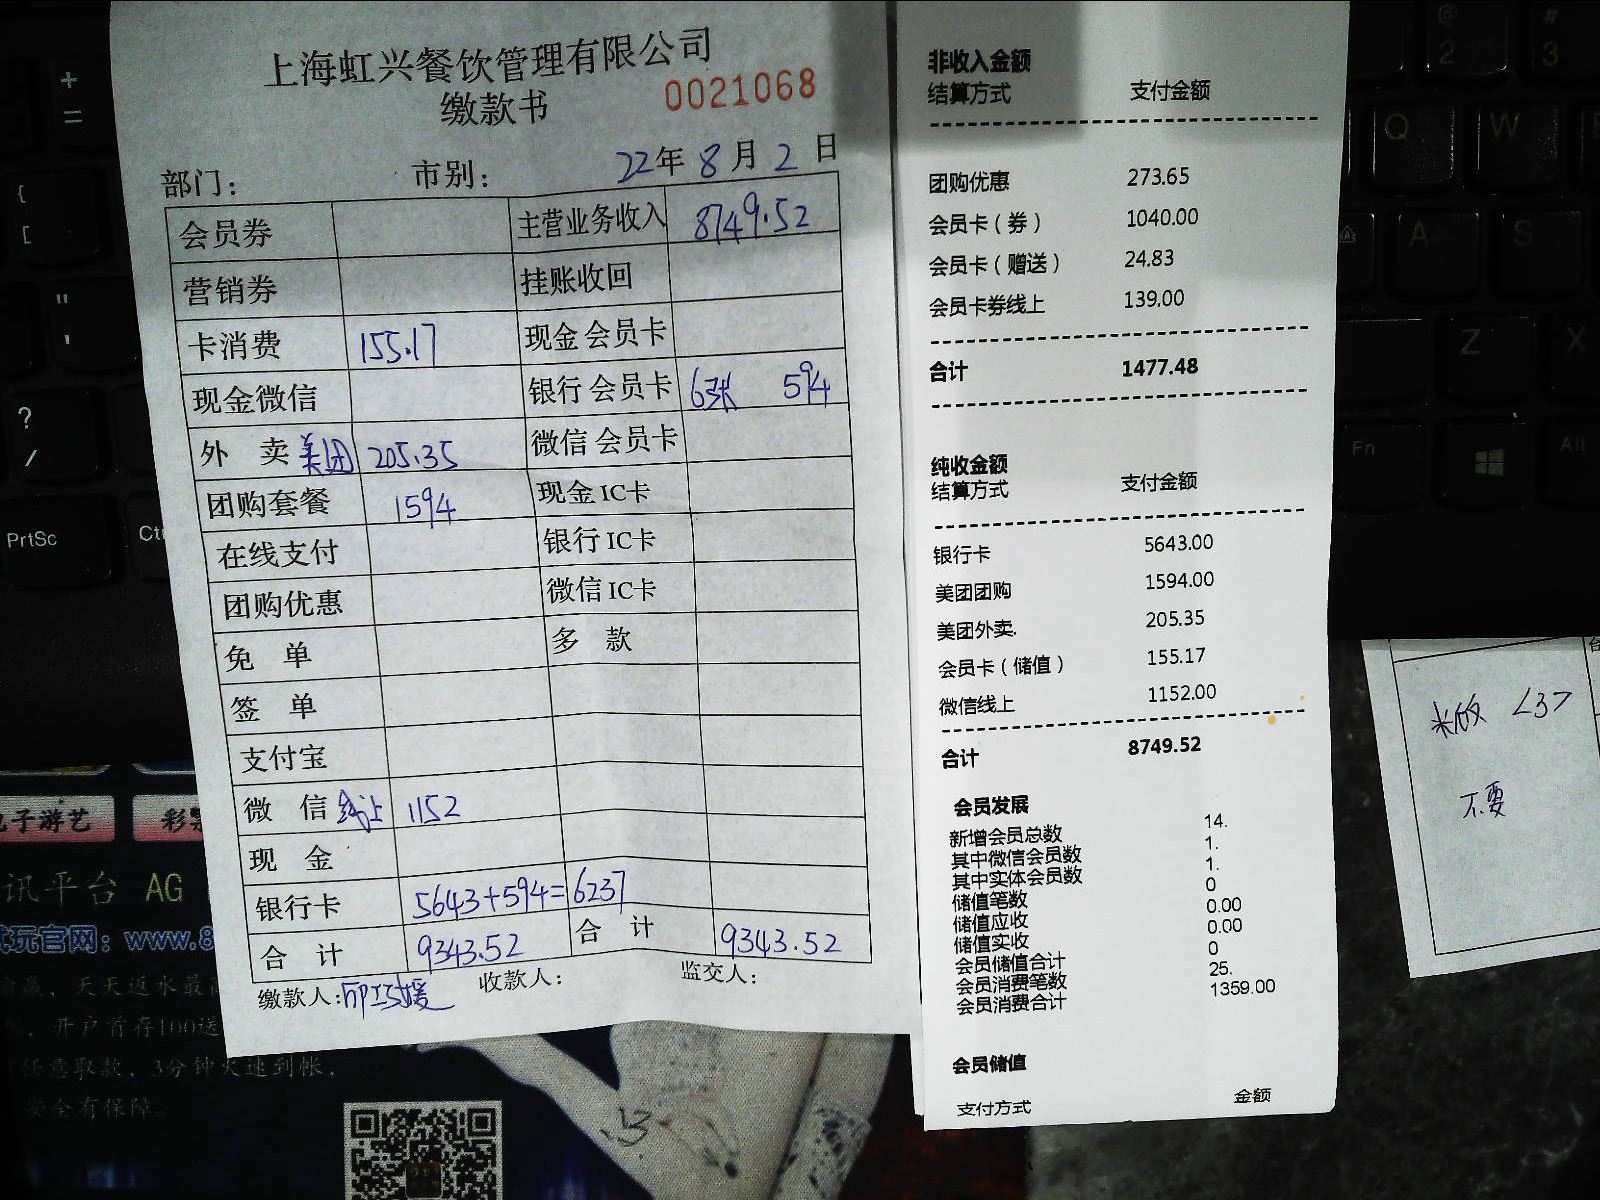 上海虹兴餐饮管理有限公司
缴款书 0021068
部门： 市别： 22年 8月 2日
会员券 主营业务收入 8749.52
营销券 挂账收回
卡消费 155.17 现金会员卡
现金微信 银行会员卡 6张 594
外 卖 美团 205.35 微信会员卡
团购套餐 1594 现金IC卡
在线支付 银行IC卡
团购优惠 微信IC卡
免 单 多 款
签 单
支付宝
微 信 线上 1152
现 金
银行卡 5643+594=6237
合 计 9343.52 合 计 9343.52
缴款人: 收款人: 监交人:
非收入金额
结算方式 支付金额
团购优惠 273.65
会员卡（券） 1040.00
会员卡（赠送） 24.83
会员卡券线上 139.00
合计 1477.48
纯收金额
结算方式 支付金额
银行卡 5643.00
美团团购 1594.00
美团外卖. 205.35
会员卡（储值） 155.17
微信线上 1152.00
合计 8749.52
会员发展
新增会员总数 14.
其中微信会员数 1.
其中实体会员数 1.
储值笔数 0
储值应收 0.00
储值实收 0.00
会员储值合计 0
会员消费笔数 25.
会员消费合计 1359.00
会员储值
支付方式 金额
237
不要
PrtSc
Fn
Alt
Q
W
A
S
Z
X
2
3
子游艺
彩
讯平台 AG
玩官网：www.8
天天返水最
，开户首存100送
任意取款，3分钟火速到帐，
安全有保障。